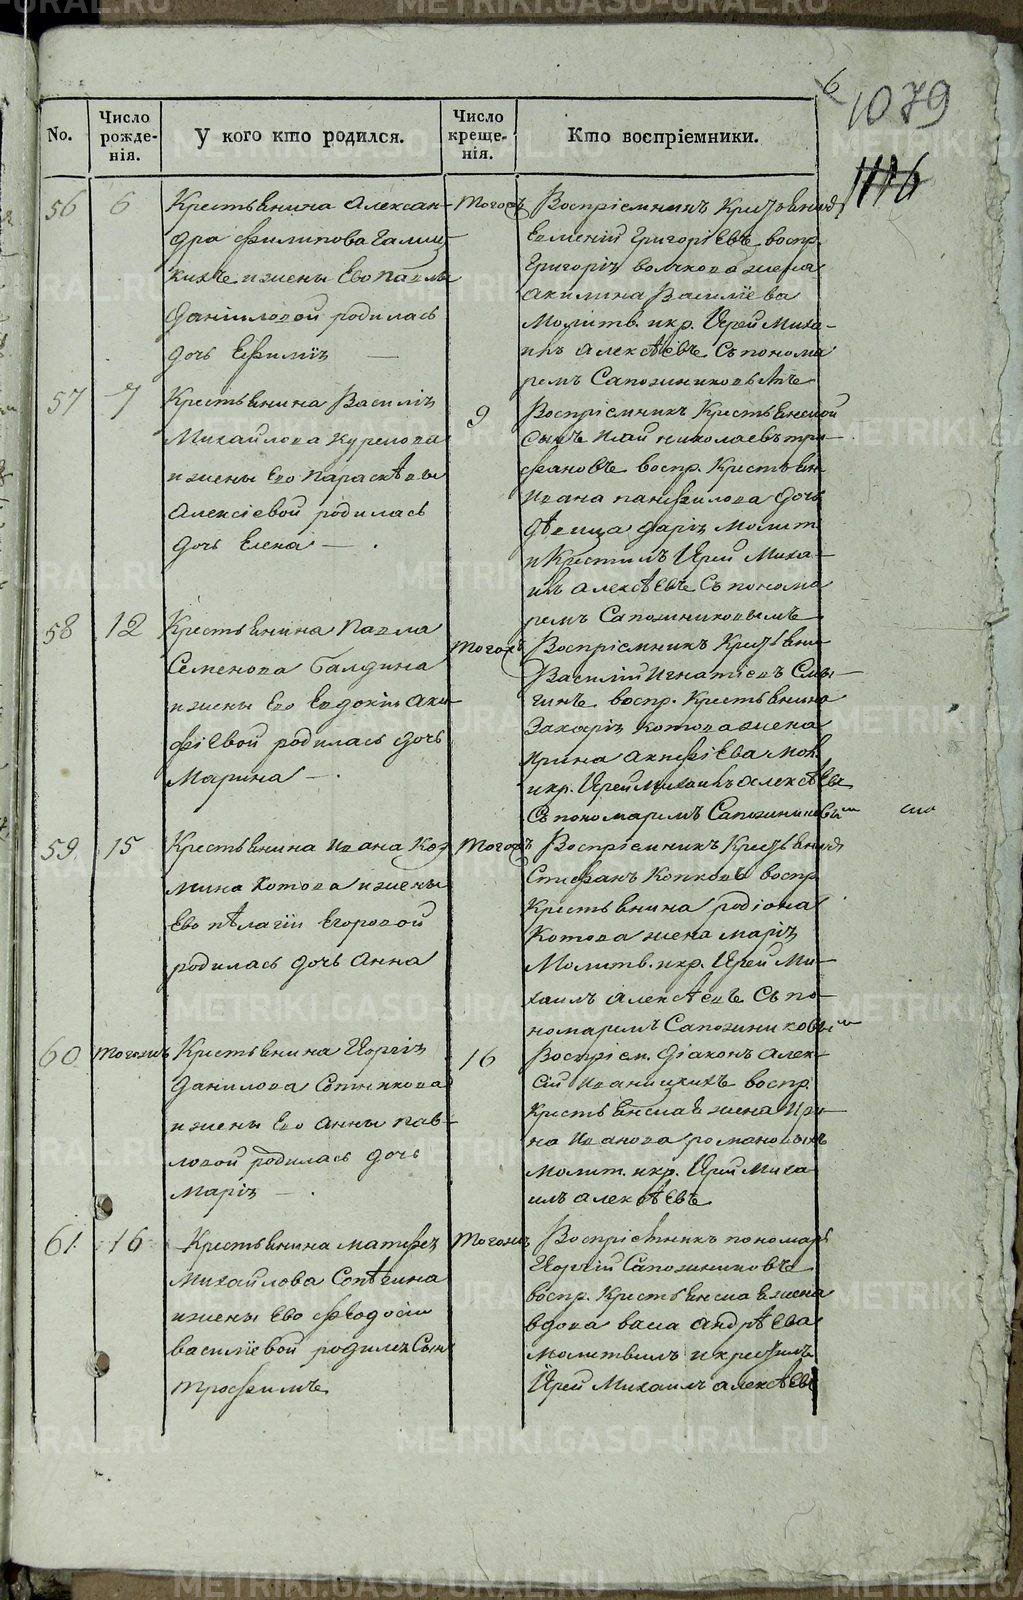 6
1079
1116
No.
Число рожденія.
У кого кто родился.
Число крещенія.
Кто воспріемники.
56
6
Крестьянина Алексан-
дра Филипова Галиц-
кихъ и жены Ево Павлы
Даниловой родилась
дочь Ефимія —
тогожъ
Воспріемникъ Крестьянинъ
Евменій Григоріевъ воспр.
Григорія Волкова жена
Акилина Василіева
Молитв. икр. Іерей Миха-
илъ Алексѣевъ Съ понома
ремъ Сапожниковымъ
57
7
Крестьянина Василія
Михайлова
и жены Ево Параскѣвы
Алексіевой родилась
дочь Елена — .
9
Воспріемникъ Крестьянской
сынъ Николаевъ Три-
фановъ воспр. Крестьян
Ивана Панфилова дочь
дѣвица Дарія Молит
и Крестилъ Іерей Миха-
илъ Алексѣевъ Съ понома
ремъ Сапожниковымъ
58
12
Крестьянина Павла
Семенова Балдина
и жены Ево Евдокіи Аки-
фіевой родилась дочь
Марина — .
тогожъ
Воспріемникъ Крестьяни
Василій Игнатіевъ Смы-
гинъ воспр. Крестьянина
Захарія Котова жена
Ирина Акифіева мол.
икр. Іерей Михаилъ Алексѣевъ
Съ пономаремъ Сапожниковым
59
15
Крестьянина Ивана Коз
мина Котова и жены
Ево Пѣлагіи Егоровой
родилась дочь Анна
тогожъ
Воспріемникъ Крестьянинъ
Стефанъ Копковъ воспр.
Крестьянина Родіона
Котова жена Марія
Молитв. икр. Іерей Ми-
хаилъ Алексѣевъ Съ по-
номаремъ Сапожниковым
60
тогожъ
Крестьянина Георгія
Данилова Сотникова
и жены Ево Анны Пав-
ловой родилась дочь
Марія — .
16
Воспріем. Діаконъ Алек-
сій Иваницкихъ воспр.
Крестьянская жена Ири-
на Иванова Романовыхъ
молит. икр. Іерей Миха
илъ Алексѣевъ
61.
16
Крестьянина Матфея
Михайлова Сопѣгина
и жены Ево Феодосіи
Василіевой родился Сынъ
Трофимъ
тогожъ
Воспріемникъ пономарь
Георгій Сапожниковъ
воспр. Крестьянская жена
вдова Васа Андрѣева
молитвилъ и крестилъ
Іерей Михаилъ Алексѣевъ